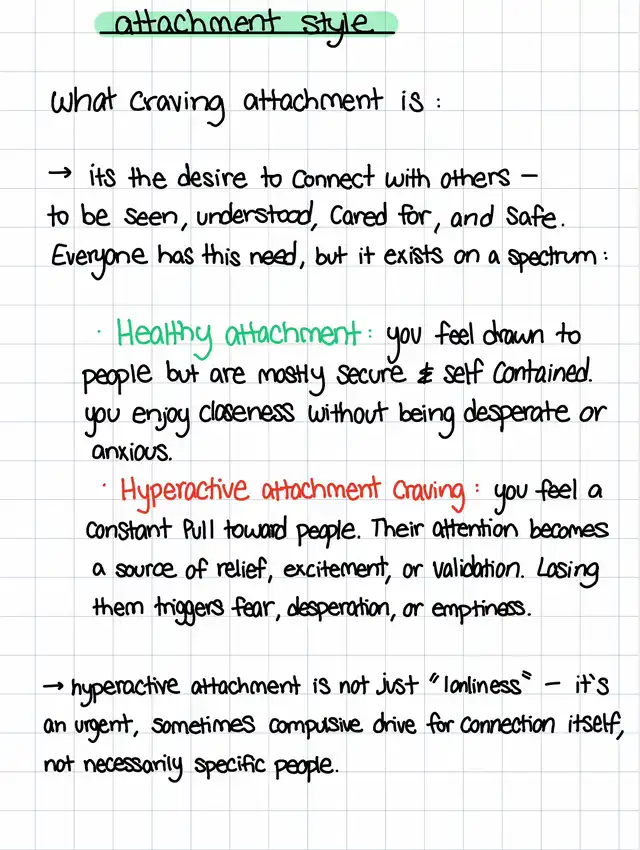 attachment style
What craving attachment is :
→ its the desire to connect with others –
to be seen, understood, cared for, and safe.
Everyone has this need, but it exists on a spectrum :
· Healthy attachment : you feel drawn to
people but are mostly secure & self contained.
you enjoy closeness without being desperate or
anxious.
· Hyperactive attachment craving : you feel a
constant pull toward people. Their attention becomes
a source of relief, excitement, or validation. Losing
them triggers fear, desperation, or emptiness.
→ hyperactive attachment is not just "lonliness" – it's
an urgent, sometimes compusive drive for connection itself,
not necessarily specific people.